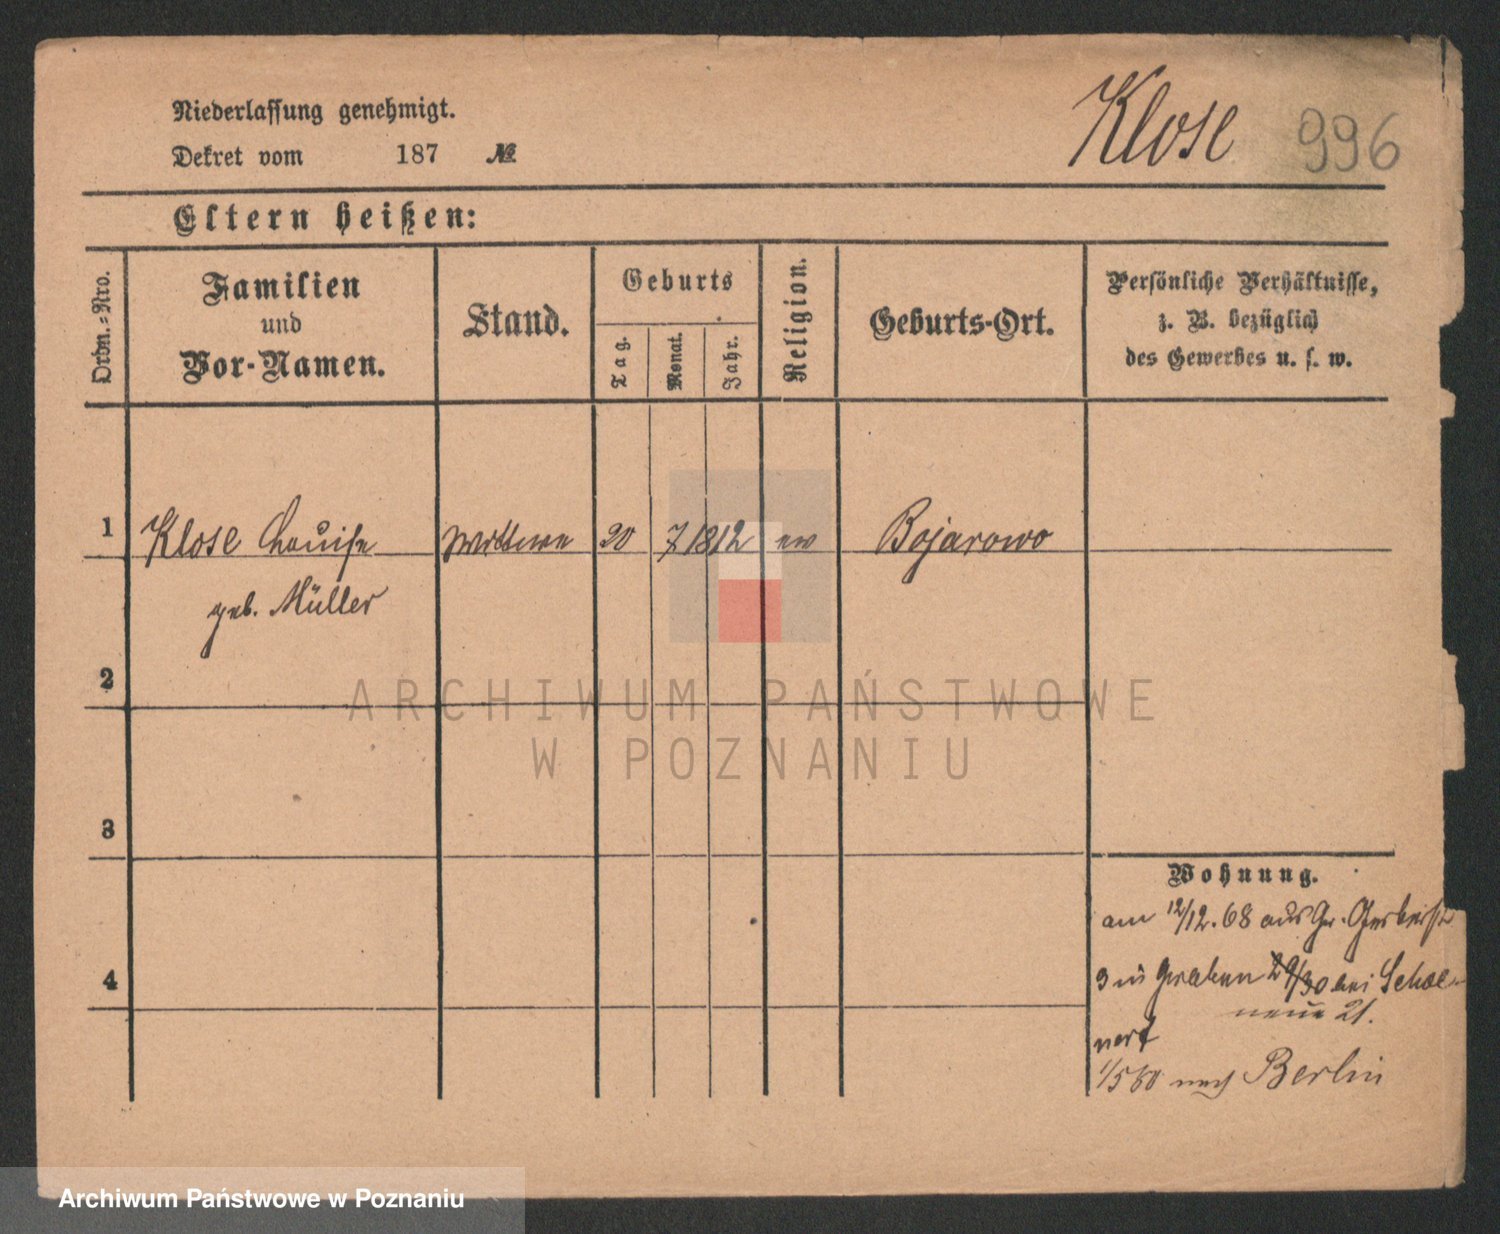 Niederlassung genehmigt.
Klose 996
Dekret vom 187 №
Eltern heißen:
Ordn.-Nro.
Familien
und
Vor-Namen.
Stand.
Geburts
Tag.
Monat.
Jahr.
Religion.
Geburts-Ort.
Persönliche Verhältnisse,
z. B. bezüglich
des Gewerbes u. s. w.
1 Klose Louise Wittwe 20 7 1812 ev Bojarowo
geb. Müller
2
3
4
Wohnung.
am 12/12.68 aus Gr. Gerberstr
3 in Graben 29/30 bei Schoe-
neue 21.
nert
1/5 80 nach Berlin
ARCHIWUM PAŃSTWOWE
W POZNANIU
Archiwum Państwowe w Poznaniu